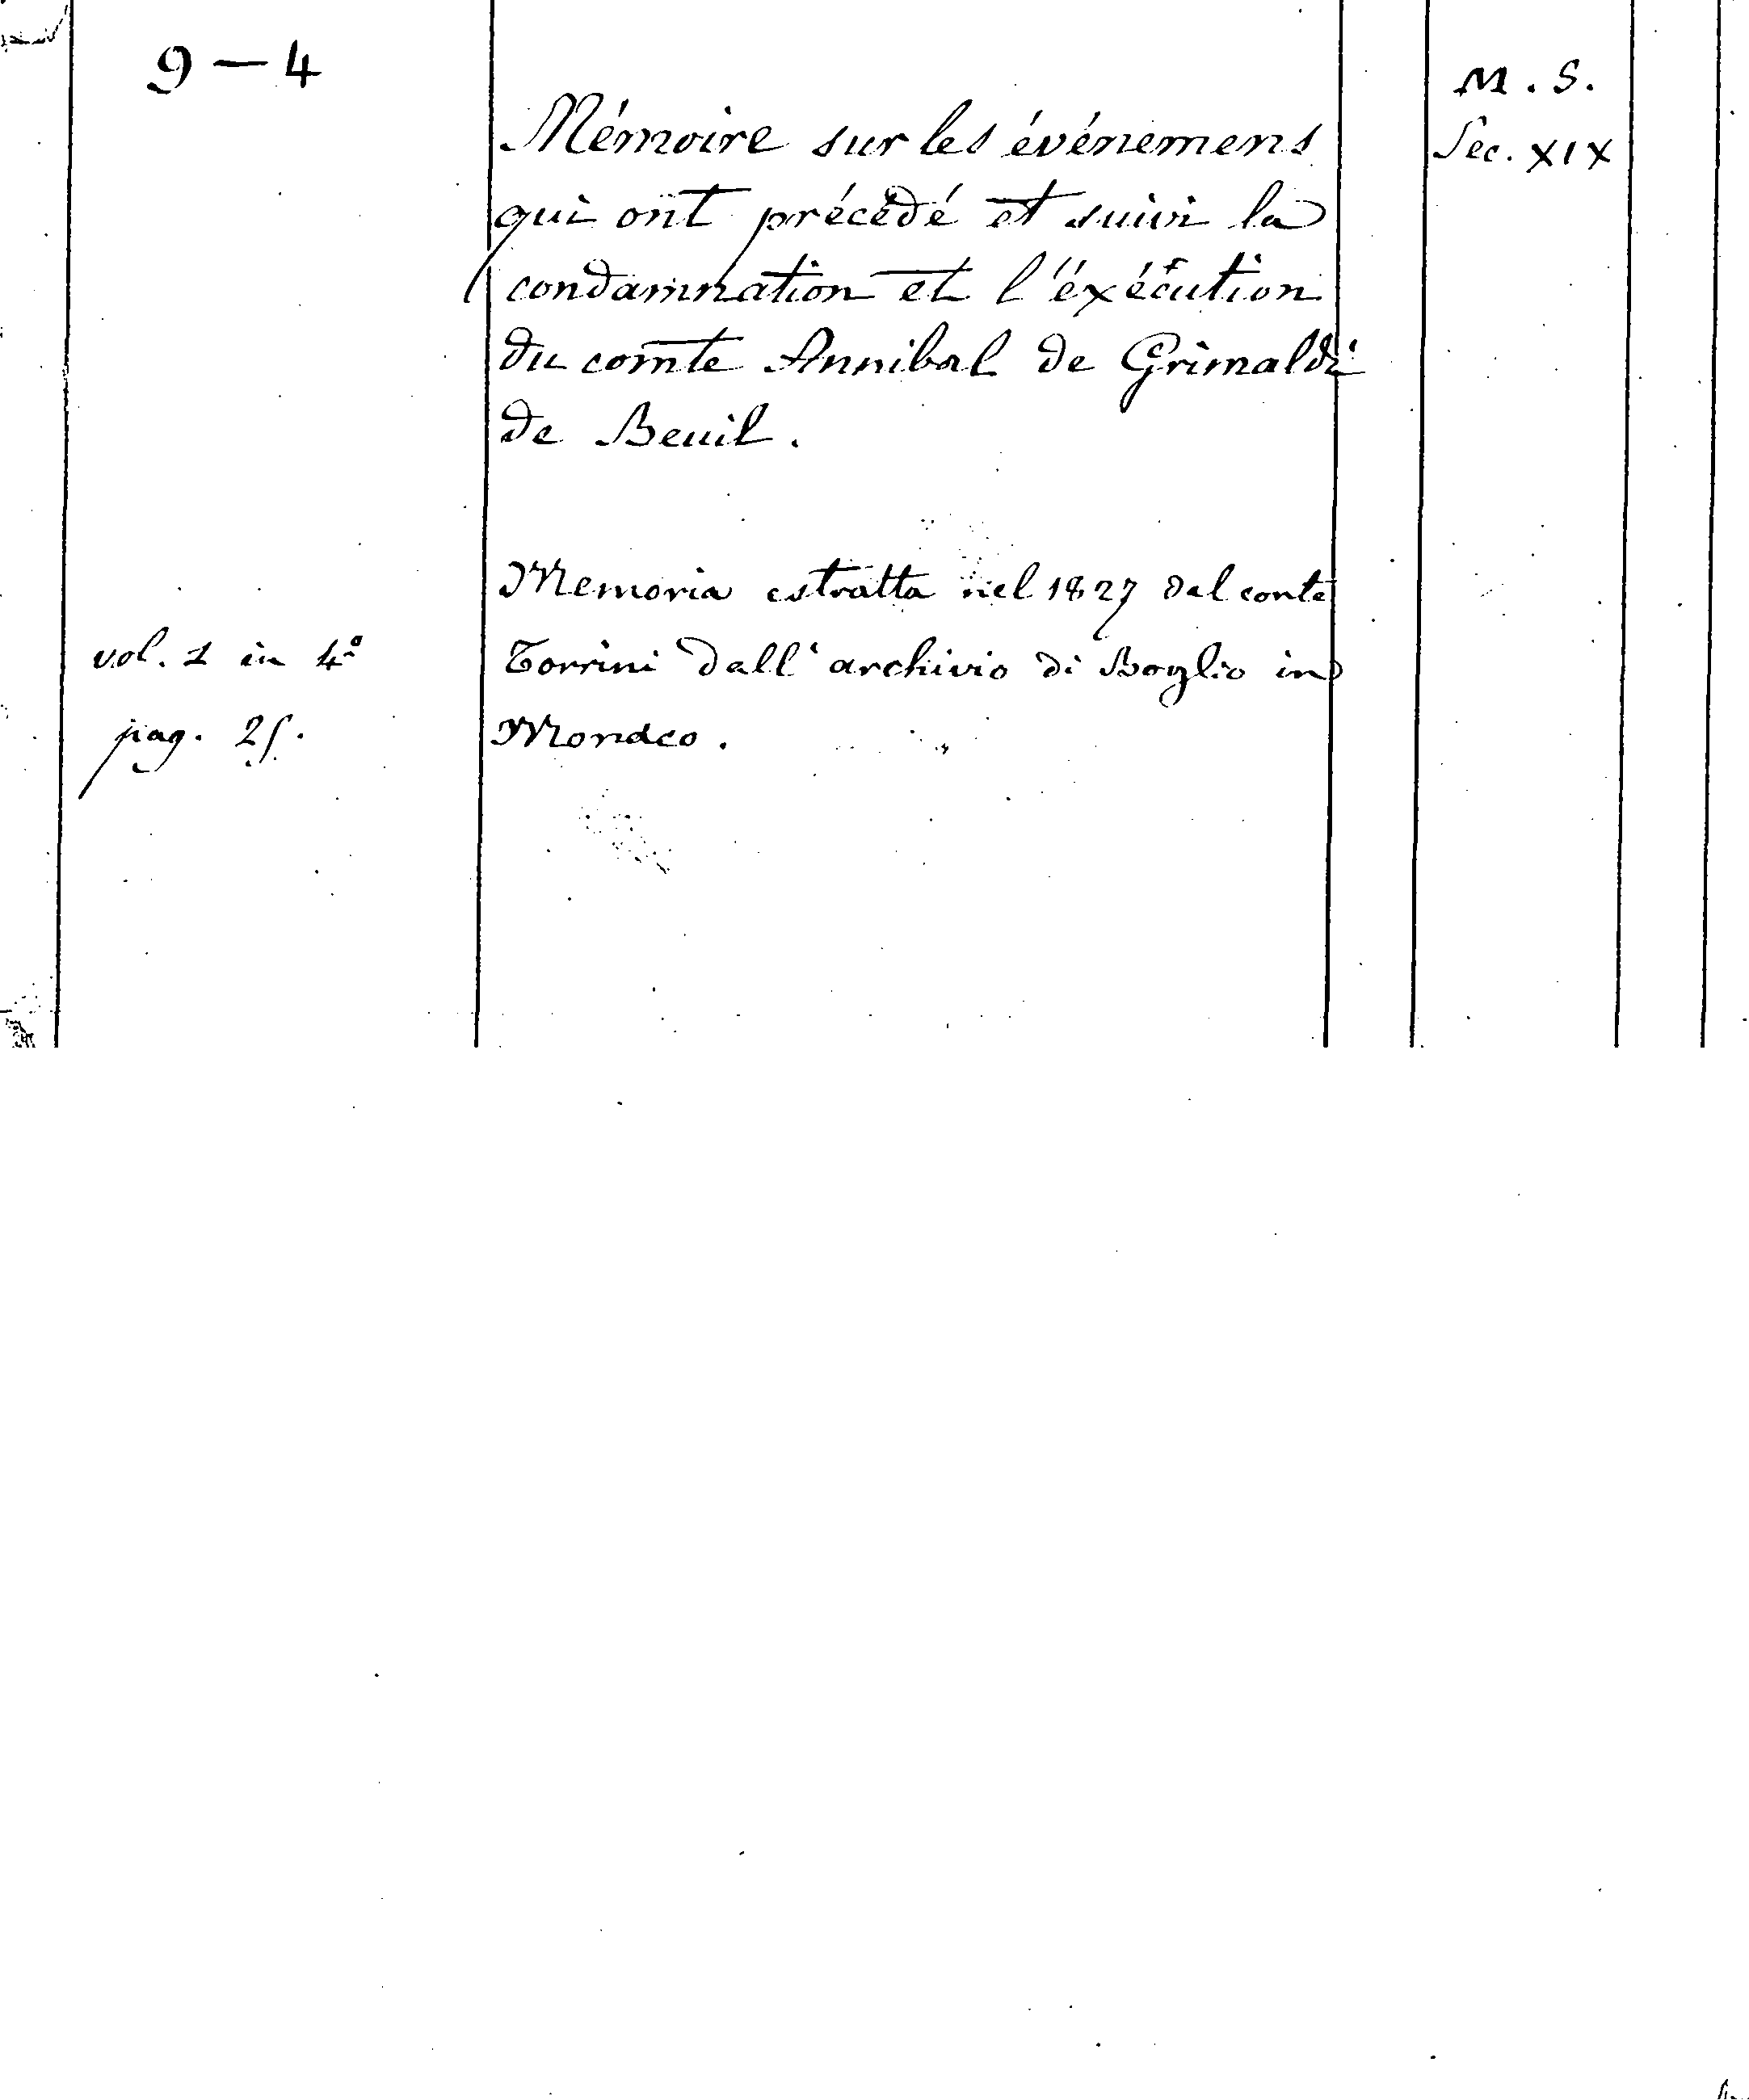 9 — 4
M. S.
Sec. XIX
Mémoire sur les événemens
qui ont précédé et suivi la
condamnation et l'éxécution
du comte Annibal de Grimaldi
de Beuil.
Memoria estratta nel 1827 dal conte
Torrini dall' archivio di Boglio in
Monaco.
vol. 1 in 4º
pag. 25.